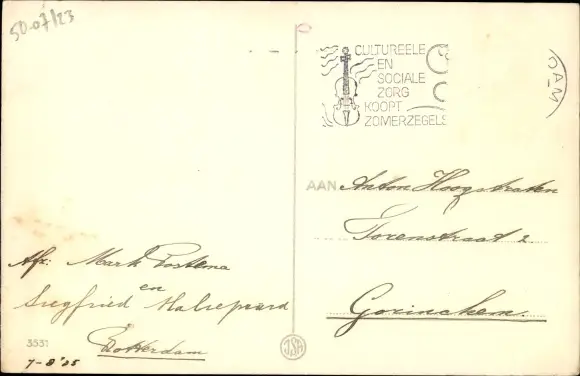 50-07/23
CULTUREELE
EN
SOCIALE
ZORG
KOOPT
ZOMERZEGELS
DAM
AAN Anton Hoogstraten
Torenstraat 2
Gorinchem.
Afz: Mark Postema
en
Siegfried Halrepaard
Rotterdam
3531
7-8'35
JSA